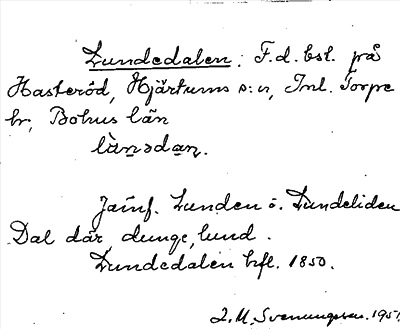 Lundedalen: F.d. bst. på
Hasteröd, Hjärtums s:n, Inl. Torpe
hr; Bohus län
lànədan.
Jämf. Lunden o. Lundeliden
Dal där dunge, lund.
Lundedalen brfl. 1850.
Svenungsson. 1951.